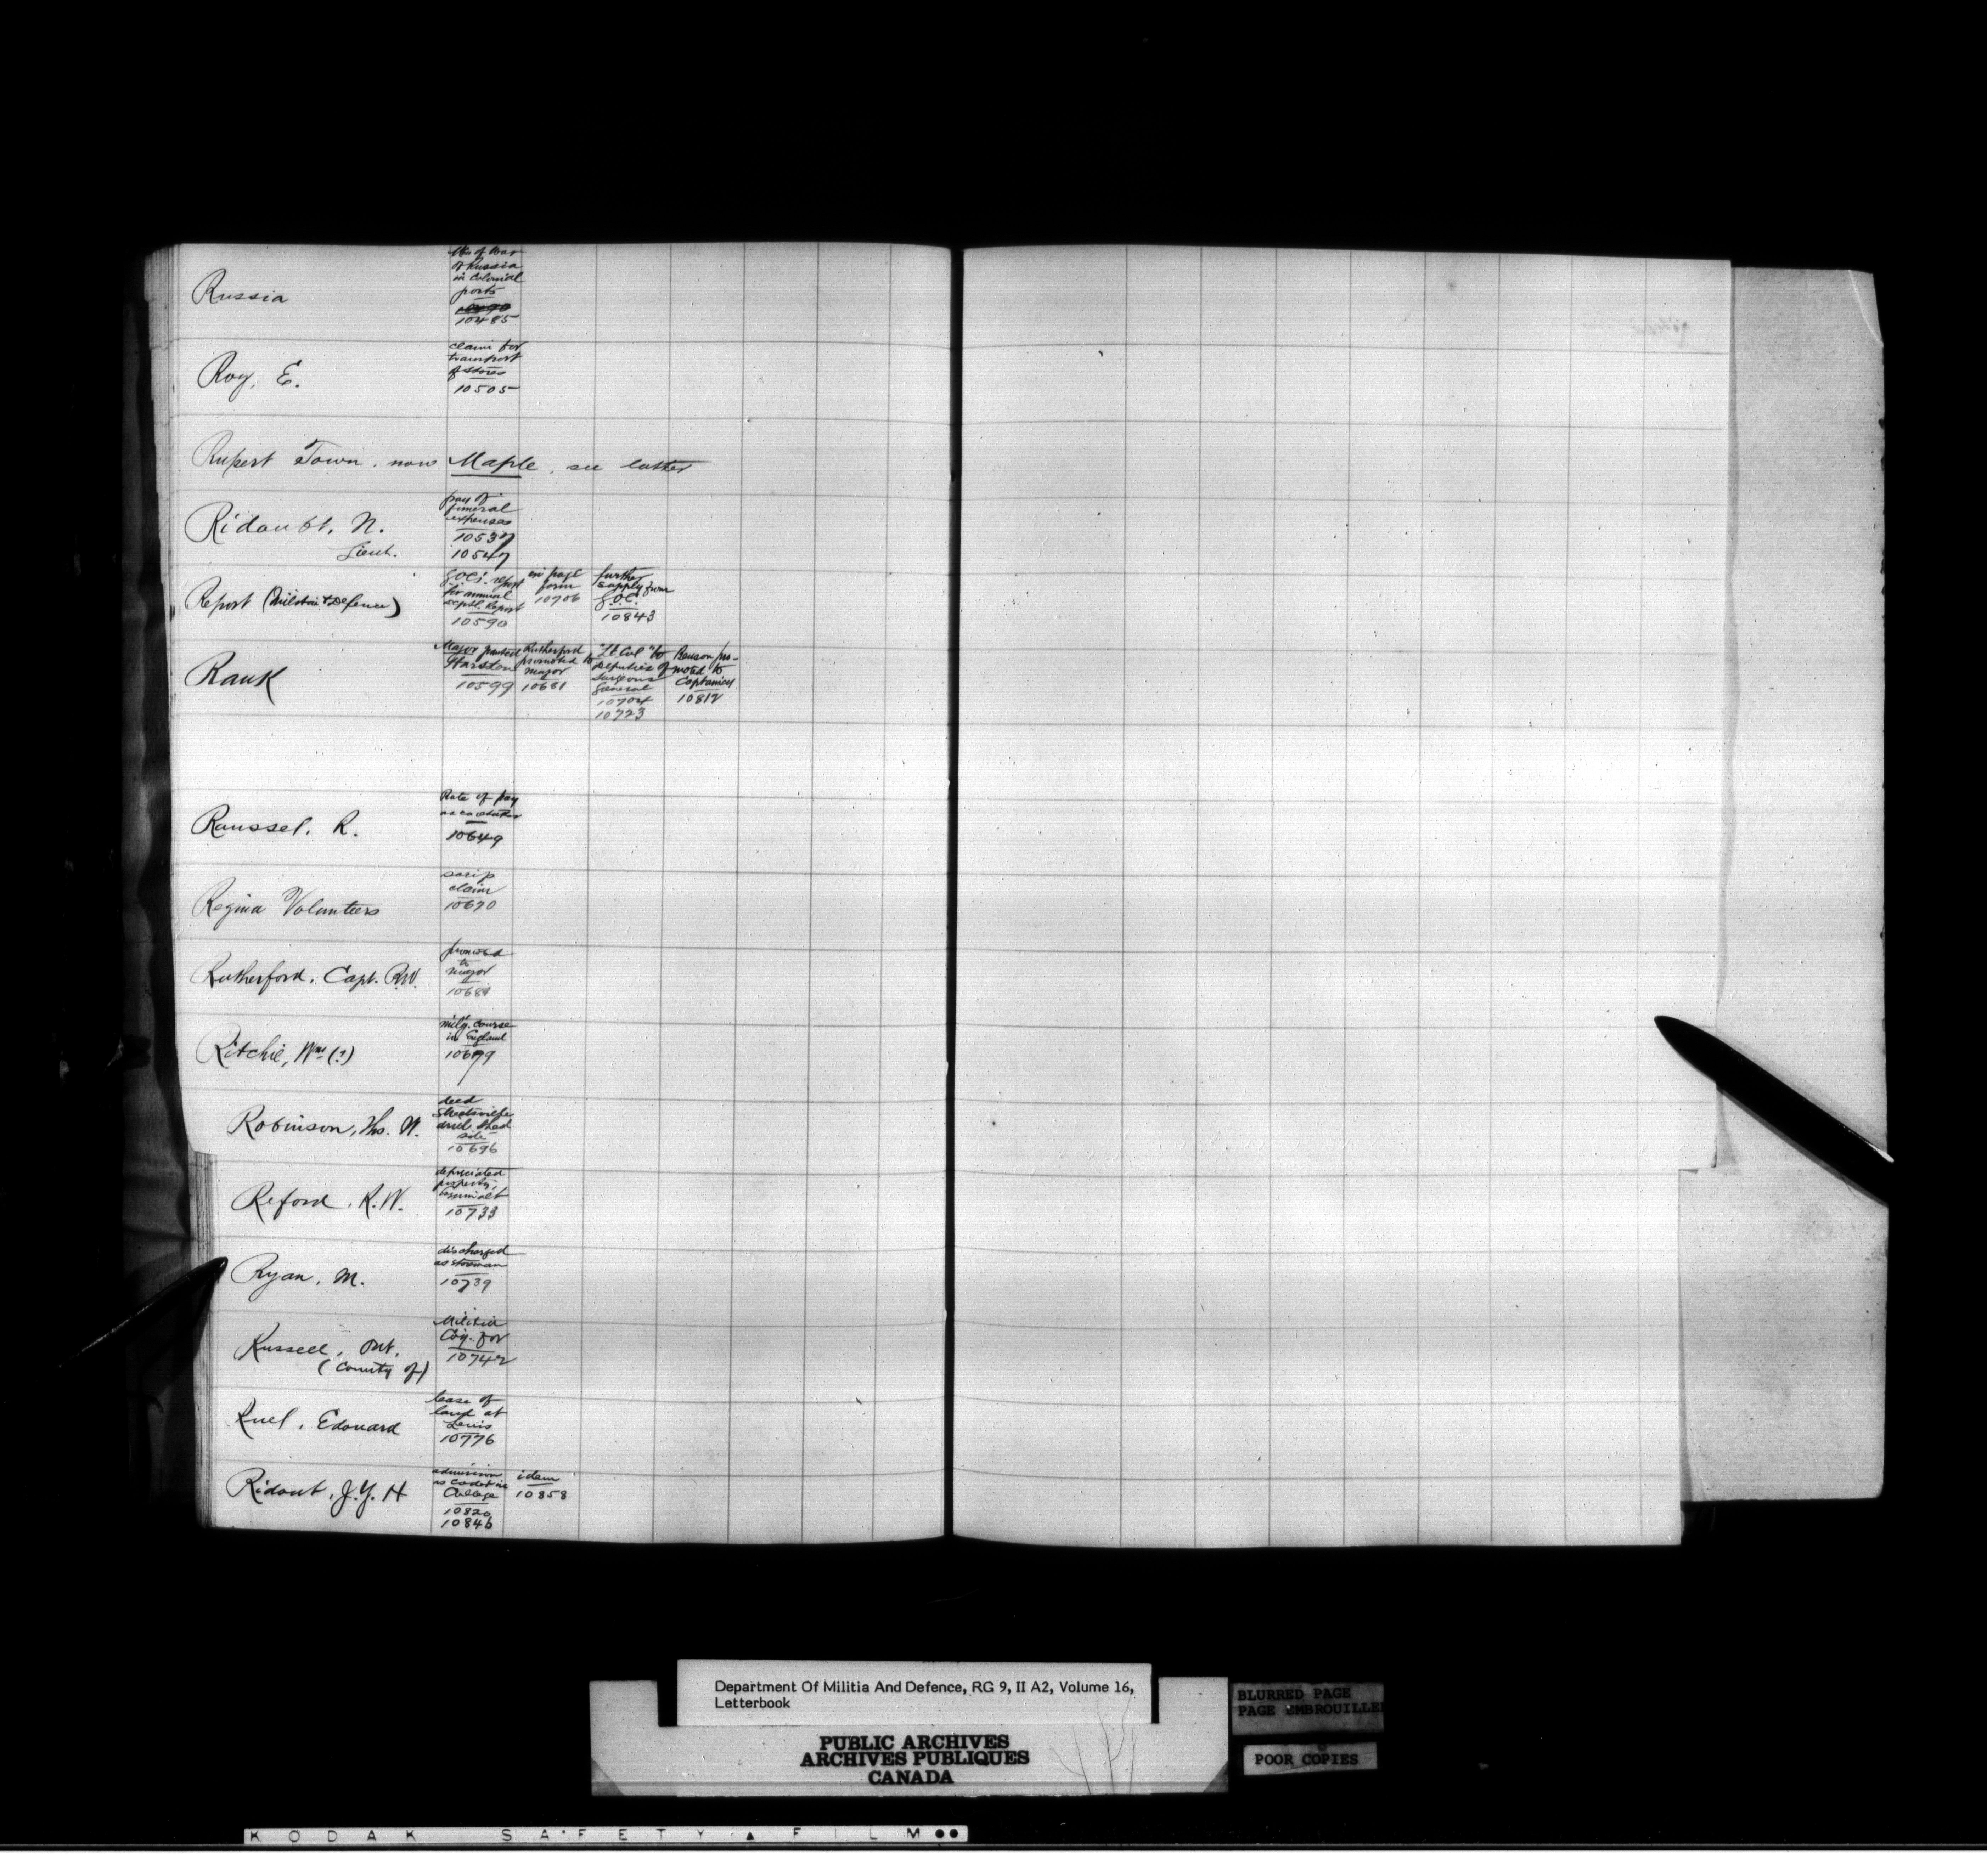 Russia
of Russia
in Colonial
ports
10485
Roy, E.
claim for
transport
of stores
10505
Rupert Town, now Maple, see latter
Ridoubt, N.
Lieut.
pay of
funeral
expenses
10537
10547
Report (Militia & Defence)
G.O.C's. report
for annual
Deptl. Report
10590
in page
form
10706
further
supply from
G.O.C.
10843
Rank
Major granted
Harston
10599
Rutherford
promoted to
major
10681
"Lt Col" to
Deputies of
Surgeons
General
10704
10723
Benson pro-
moted to
Captaincy
10812
Roussel, R.
Rate of pay
as caretaker
10649
Regina Volunteers
scrip
claim
10670
Rutherford, Capt. R.W.
promoted
to
major
10681
Ritchie, Wm (?)
mily. course
in England
Robinson, Ths. W.
deed
Streetsville
drill shed
site
10696
Reford, R.W.
depreciated
property,
10733
Ryan, M.
discharged
as storeman
10739
Russell, Ont.
(County of)
Militia
Coy. for
10742
Ruel, Edouard
lease of
land at
Levis
10776
Ridout, J.Y. H
admission
as cadet in
College
10820
10846
idem
10858
Department Of Militia And Defence, RG 9, II A2, Volume 16,
Letterbook
PUBLIC ARCHIVES
ARCHIVES PUBLIQUES
CANADA
BLURRED PAGE
PAGE EMBROUILLE
POOR COPIES
KODAK SAFETY ▲ FILM ●●